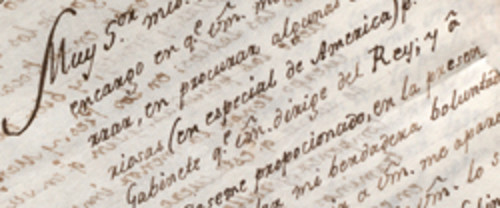 Muy S.or mio.
encargo en q.e Vm. m
rrar, en procurar algunas
riosas (en especial de America) p.
Gabinete q.e Vm. dirige del Rey; y â
deseme propocionado, en la presen
mi berdadera bolunta
a Vm. me apare
Vm. lo